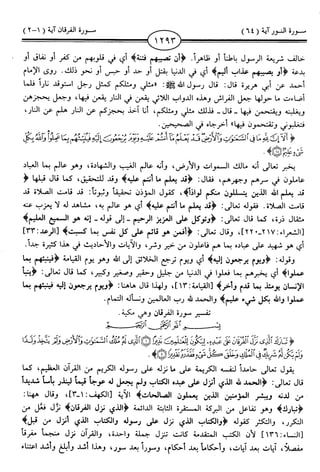 سورة النور آية (٦٤)
سورة الفرقان آية (١-٢)
١٢٩٣
خالف شريعة الرسول باطناً أو ظاهراً. ﴿أن تصيبهم فتنة﴾ أي في قلوبهم من كفر أو نفاق أو
بدعة ﴿أو يصيبهم عذاب أليم﴾ أي في الدنيا بقتل أو حد أو حبس أو نحو ذلك. روى الإمام
أحمد عن أبي هريرة قال: قال رسول الله ﷺ: «مثلي ومثلكم كمثل رجل استوقد ناراً فلما
أضاءت ما حولها جعل الفراش وهذه الدواب اللائي يقعن في النار يقعن فيها، وجعل يحجزهن
ويغلبنه ويقتحمن فيها - قال - فذلك مثلي ومثلكم، أنا آخذ بحجزكم عن النار هلم عن النار،
فتغلبوني وتقتحمون فيها» أخرجاه في الصحيحين.
أَلَا إِنَّ لِلَّهِ مَا فِي السَّمَاوَاتِ وَالْأَرْضِ قَدْ يَعْلَمُ مَا أَنتُمْ عَلَيْهِ وَيَوْمَ يُرْجَعُونَ إِلَيْهِ فَيُنَبِّئُهُم بِمَا عَمِلُوا وَاللَّهُ بِكُلِّ
شَيْءٍ عَلِيمٌ
يخبر تعالى أنه مالك السموات والأرض، وأنه عالم الغيب والشهادة، وهو عالم بما العباد
عاملون في سرهم وجهرهم، فقال: ﴿قد يعلم ما أنتم عليه﴾ وقد للتحقيق، كما قال قبلها ﴿
قد يعلم الله الذين يتسللون منكم لواذاً﴾، كقول المؤذن تحقيقاً وثبوتاً: قد قامت الصلاة قد
قامت الصلاة. فقوله تعالى: ﴿قد يعلم ما أنتم عليه﴾ أي هو عالم به، مشاهد له لا يعزب عنه
مثقال ذرة، كما قال تعالى: ﴿وتوكل على العزيز الرحيم - إلى قوله - إنه هو السميع العليم﴾
[الشعراء: ٢١٧-٢٢٠]، وقال تعالى: ﴿أفمن هو قائم على كل نفس بما كسبت﴾ [الرعد: ٣٣]
أي هو شهيد على عباده بما هم فاعلون من خير وشر، والآيات والأحاديث في هذا كثيرة جداً.
وقوله: ﴿ويوم يرجعون إليه﴾ أي ويوم ترجع الخلائق إلى الله وهو يوم القيامة ﴿فينبئهم بما
عملوا﴾ أي يخبرهم بما فعلوا في الدنيا من جليل وحقير وصغير وكبير، كما قال تعالى: ﴿ينبأ
الإنسان يومئذ بما قدم وأخر﴾ [القيامة: ١٣]، ولهذا قال هاهنا: ﴿ويوم يرجعون إليه فينبئهم بما
عملوا والله بكل شيء عليم﴾ والحمد لله رب العالمين ونسأله التمام.
تفسير سورة الفرقان وهي مكية.
بسم الله الرحمن الرحيم
تَبَارَكَ الَّذِي نَزَّلَ الْفُرْقَانَ عَلَى عَبْدِهِ لِيَكُونَ لِلْعَالَمِينَ نَذِيرًا الَّذِي لَهُ مُلْكُ السَّمَاوَاتِ وَالْأَرْضِ وَلَمْ يَتَّخِذْ وَلَدًا
وَلَمْ يَكُن لَّهُ شَرِيكٌ فِي الْمُلْكِ وَخَلَقَ كُلَّ شَيْءٍ فَقَدَّرَهُ تَقْدِيرًا
يقول تعالى حامداً لنفسه الكريمة على ما نزله على رسوله الكريم من القرآن العظيم، كما
قال تعالى: ﴿الحمد لله الذي أنزل على عبده الكتاب ولم يجعل له عوجاً قيماً لينذر بأساً شديداً
من لدنه ويبشر المؤمنين الذين يعملون الصالحات﴾ الآية [الكهف: ١-٣]، وقال هاهنا:
﴿تبارك﴾ وهو تفاعل من البركة المستقرة الثابتة الدائمة ﴿الذي نزل الفرقان﴾ نزل فعّل من
التكرر، والتكثر كقوله ﴿والكتاب الذي نزل على رسوله والكتاب الذي أنزل من قبل﴾
[النساء: ١٣٦] لأن الكتب المتقدمة كانت تنزل جملة واحدة، والقرآن نزل منجماً مفرقاً
مفصلاً، آيات بعد آيات، وأحكاماً بعد أحكام، وسوراً بعد سور، وهذا أشد وأبلغ وأشد اعتناء